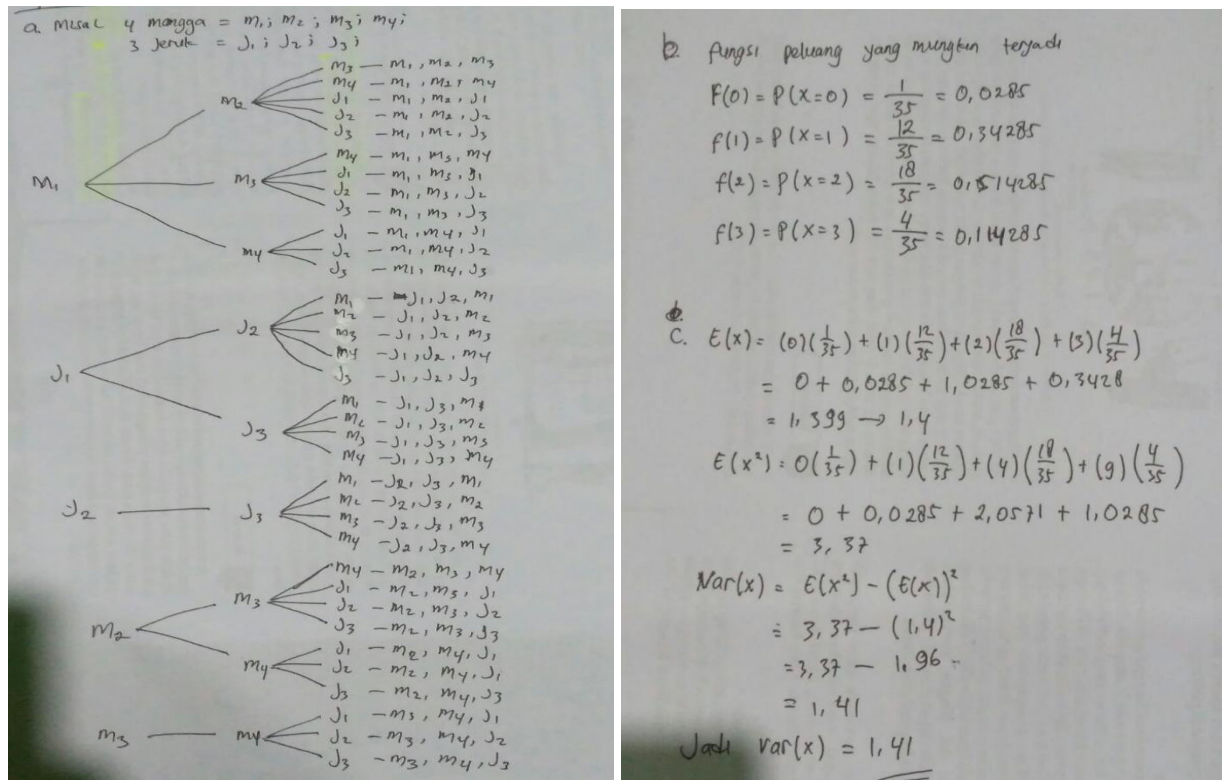 a. misal 4 mangga = m₁; m₂; m₃; m₄;
3 Jeruk = J₁; J₂; J₃;
m₁
m₂
m₃ — m₁, m₂, m₃
m₄ — m₁, m₂, m₄
J₁ — m₁, m₂, J₁
J₂ — m₁, m₂, J₂
J₃ — m₁, m₂, J₃
m₃
m₄ — m₁, m₃, m₄
J₁ — m₁, m₃, J₁
J₂ — m₁, m₃, J₂
J₃ — m₁, m₃, J₃
m₄
J₁ — m₁, m₄, J₁
J₂ — m₁, m₄, J₂
J₃ — m₁, m₄, J₃
J₁
J₂
m₁ — J₁, J₂, m₁
m₂ — J₁, J₂, m₂
m₃ — J₁, J₂, m₃
m₄ — J₁, J₂, m₄
J₃ — J₁, J₂, J₃
J₃
m₁ — J₁, J₃, m₁
m₂ — J₁, J₃, m₂
m₃ — J₁, J₃, m₃
m₄ — J₁, J₃, m₄
J₂
J₃
m₁ — J₂, J₃, m₁
m₂ — J₂, J₃, m₂
m₃ — J₂, J₃, m₃
m₄ — J₂, J₃, m₄
m₂
m₃
m₄ — m₂, m₃, m₄
J₁ — m₂, m₃, J₁
J₂ — m₂, m₃, J₂
J₃ — m₂, m₃, J₃
m₄
J₁ — m₂, m₄, J₁
J₂ — m₂, m₄, J₁
J₃ — m₂, m₄, J₃
m₃
m₄
J₁ — m₃, m₄, J₁
J₂ — m₃, m₄, J₂
J₃ — m₃, m₄, J₃
b. fungsi peluang yang mungkin terjadi
F(0) = P(X=0) = 1/35 = 0,0285
f(1) = P(X=1) = 12/35 = 0,34285
f(2) = P(X=2) = 18/35 = 0,514285
f(3) = P(X=3) = 4/35 = 0,114285
C. E(x) = (0)(1/35) + (1)(12/35) + (2)(18/35) + (3)(4/35)
= 0 + 0,0285 + 1,0285 + 0,3428
= 1,399 → 1,4
E(x²) = 0(1/35) + (1)(12/35) + (4)(18/35) + (9)(4/35)
= 0 + 0,0285 + 2,0571 + 1,0285
= 3,37
Var(x) = E(x²) - (E(x))²
= 3,37 - (1,4)²
= 3,37 - 1,96
= 1,41
Jadi var(x) = 1,41